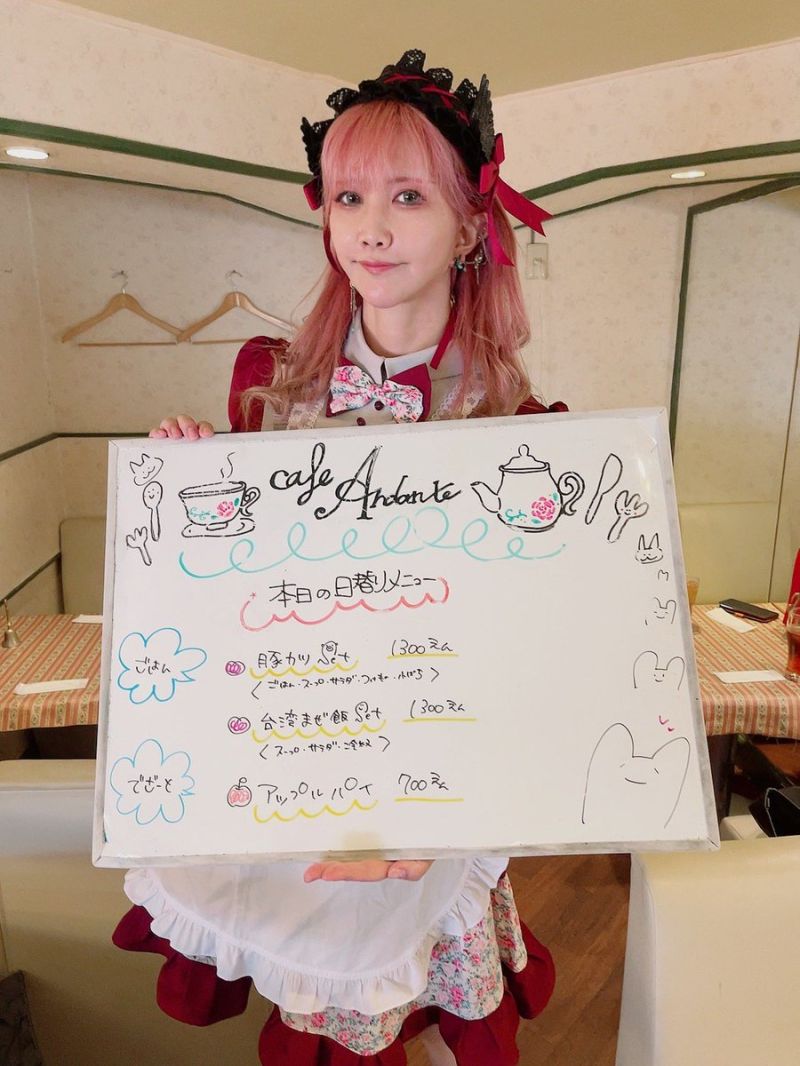 cafe Andante
本日の日替りメニュー
ごはん
豚カツ Set 1300えん
〈ごはん・スープ・サラダ・つけもの・小ばち〉
台湾まぜ飯 Set 1300えん
〈スープ・サラダ・冷奴〉
でざーと
アップルパイ 700えん